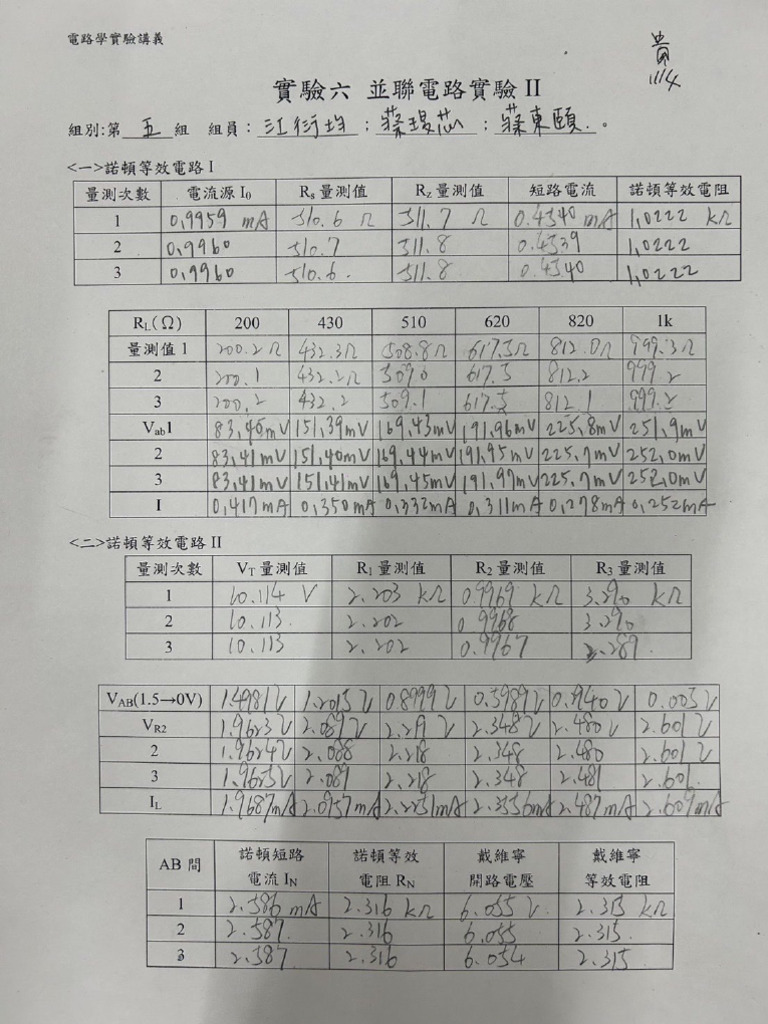 電路學實驗講義
貴
11/4
實驗六 並聯電路實驗 II
組別:第 五 組 組員: 江衍均 ; 蔡瑷芯 ; 蔡東頤 。
<一>諾頓等效電路 I
量測次數 電流源 I₀ Rs 量測值 Rz 量測值 短路電流 諾頓等效電阻
1 0.9959 mA 510.6 Ω 511.7 Ω 0.4540 mA 1.0222 kΩ
2 0.9960 510.7 511.8 0.4539 1.0222
3 0.9960 510.6. 511.8 0.4540 1.0222
RL(Ω) 200 430 510 620 820 1k
量測值 1 200.2Ω 432.3Ω 508.8Ω 617.5Ω 812.0Ω 999.3Ω
2 200.1 432.2Ω 509.0 617.5 812.2 999.2
3 200.2 432.2 509.1 617.5 812.1 999.2
Vab1 83.40mV 151.39mV 169.43mV 191.96mV 225.8mV 251.9mV
2 83.41mV 151.40mV 169.44mV 191.95mV 225.7mV 252.0mV
3 83.41mV 151.41mV 169.45mV 191.97mV 225.7mV 252.0mV
I 0.417mA 0.350mA 0.332mA 0.311mA 0.278mA 0.252mA
<二>諾頓等效電路 II
量測次數 VT 量測值 R1 量測值 R2 量測值 R3 量測值
1 10.114 V 2.203 kΩ 0.9969 kΩ 3.290 kΩ
2 10.113. 2.202 0.9968 3.290
3 10.113 2.202 0.9967 3.289.
VAB(1.5→0V) 1.4981V 1.2015V 0.8999V 0.5989V 0.2940V 0.003V
VR2 1.9623V 2.089V 2.219V 2.348V 2.480V 2.601V
2 1.9624V 2.088 2.218 2.348 2.480 2.601V
3 1.9625V 2.089 2.218 2.348 2.481 2.601.
IL 1.9687mA 2.0957mA 2.2251mA 2.3556mA 2.487mA 2.609mA
AB 間 諾頓短路電流 IN 諾頓等效電阻 RN 戴維寧開路電壓 戴維寧等效電阻
1 2.586 mA 2.316 kΩ 6.055 V. 2.315 kΩ
2 2.587. 2.316 6.055 2.315.
3 2.587 2.316 6.054 2.315